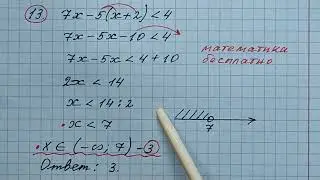 13 7x-5(x+2)<4
7x-5x-10<4
математика
бесплатно
7x-5x<4+10
2x<14
x<14:2
7
x<7
x∈(-∞; 7)-3
Ответ: 3.